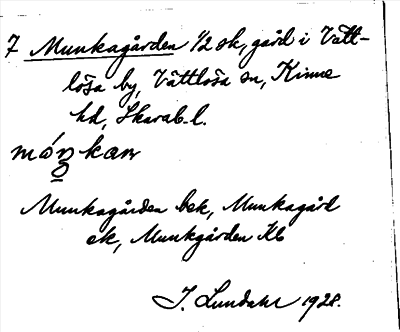 7 Munkagården 1/2 sk, gård i Vätt-
lösa by, Vättlösa sn, Kinne
hd, Skarab. l.
Munkagården bek, Munkagård
ek, Munkgården Kb
J. Lundahl 1928.